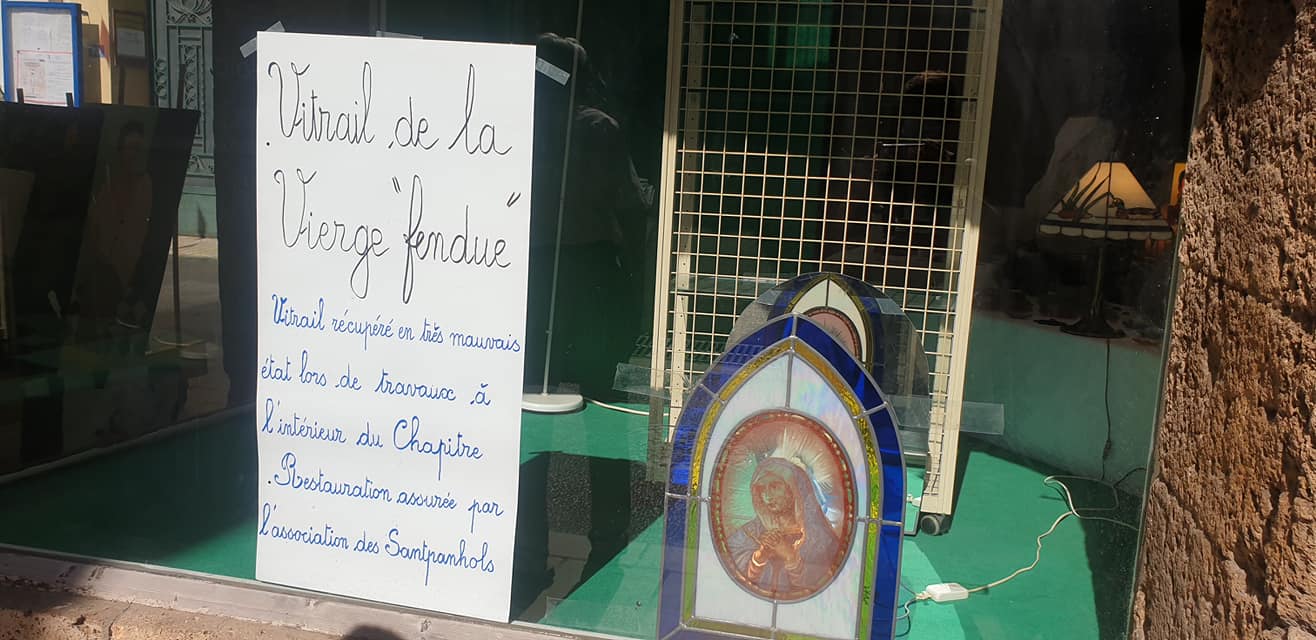 Vitrail de la
Vierge "fendue"
Vitrail récupéré en très mauvais
état lors de travaux à
l'intérieur du Chapitre
. Restauration assurée par
l'association des Santpanhols